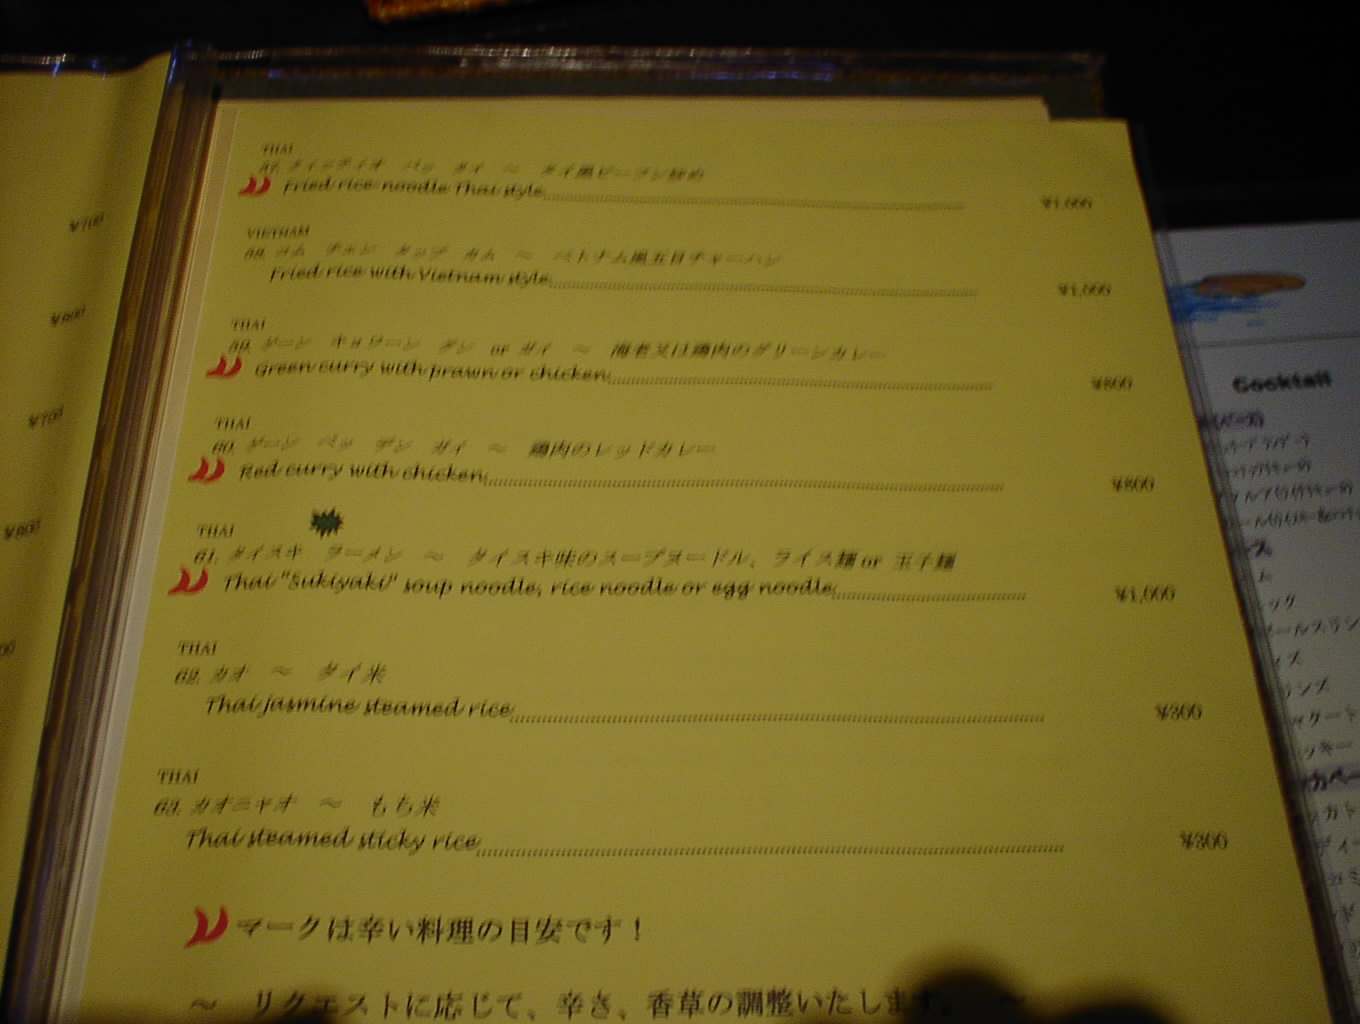 THAI
57. クイッティオ パッ タイ ～ タイ風ビーフン炒め
Fried rice noodle Thai style ¥1,000
VIETNAM
58. コム チェン タップ カム ～ ベトナム風五目チャーハン
Fried rice with Vietnam style ¥1,000
THAI
59. ゲーン キョワーン グン or ガイ ～ 海老又は鶏肉のグリーンカレー
Green curry with prawn or chicken ¥800
THAI
60. ゲーン ペッ デン ガイ ～ 鶏肉のレッドカレー
Red curry with chicken ¥800
THAI
61. タイスキ ラーメン ～ タイスキ味のスープヌードル、ライス麺 or 玉子麺
Thai "Sukiyaki" soup noodle, rice noodle or egg noodle ¥1,000
THAI
62. カオ ～ タイ米
Thai jasmine steamed rice ¥300
THAI
63. カオニャオ ～ もち米
Thai steamed sticky rice ¥300
マークは辛い料理の目安です！
～ リクエストに応じて、辛さ、香草の調整いたします。 ～
¥700
¥800
¥700
¥800
Cocktail